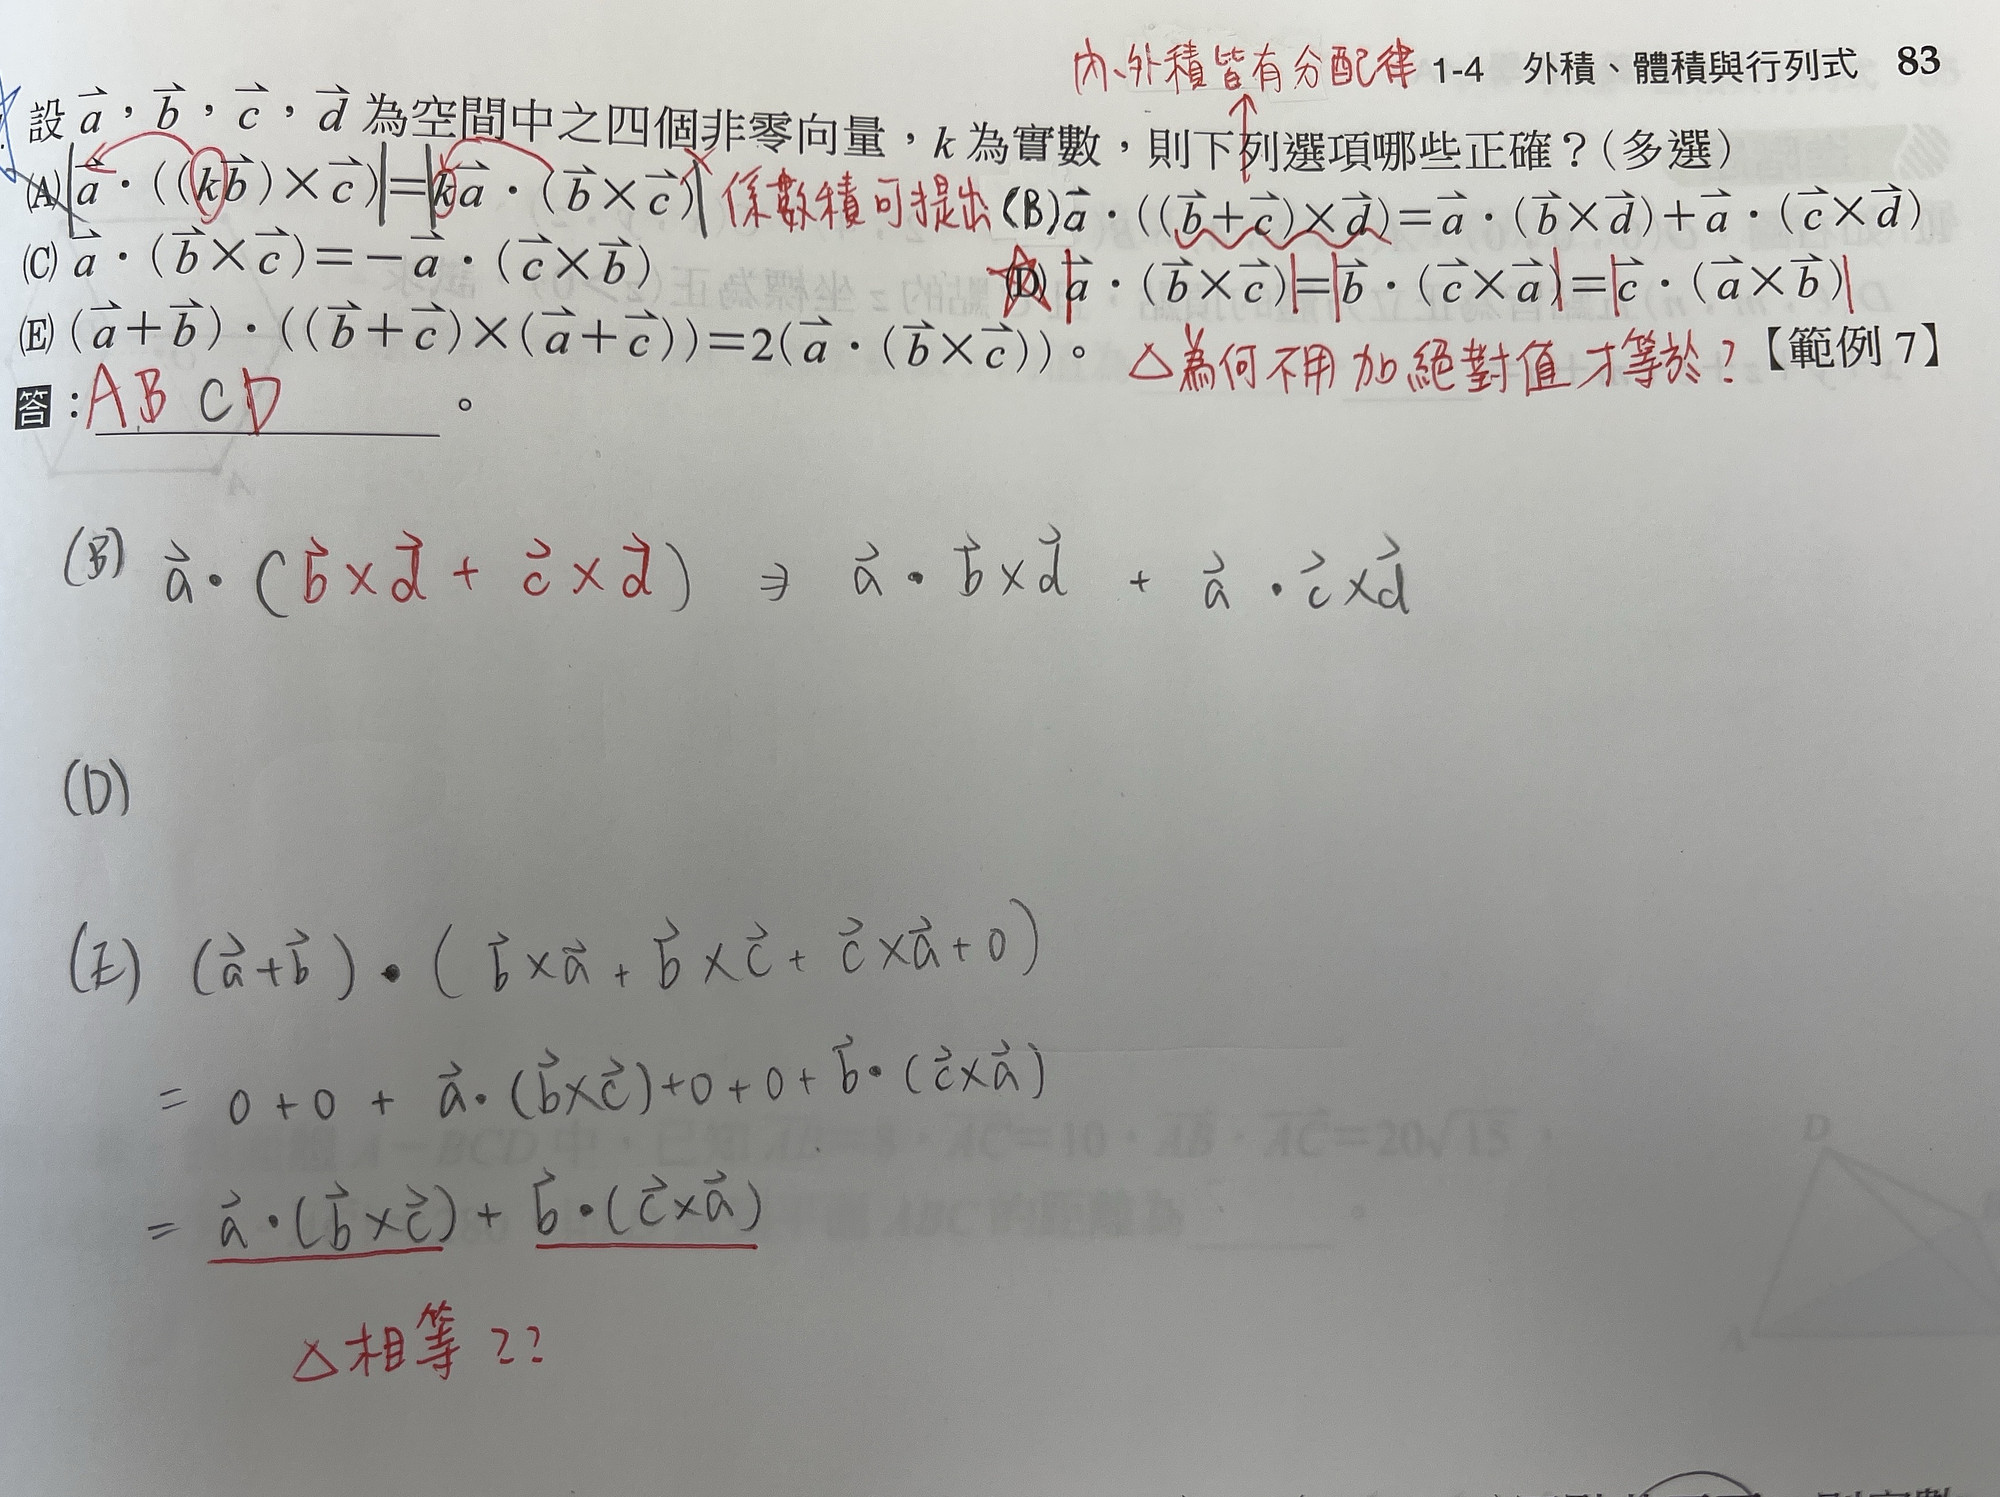 內、外積皆有分配律 1-4 外積、體積與行列式 83
設 a⃗,b⃗,c⃗,d⃗ 為空間中之四個非零向量,k 為實數,則下列選項哪些正確?(多選)
(A) |a⃗・((kb⃗)×c⃗)|=|ka⃗・(b⃗×c⃗)| 係數積可提出 (B) a⃗・((b⃗+c⃗)×d⃗)=a⃗・(b⃗×d⃗)+a⃗・(c⃗×d⃗)
(C) a⃗・(b⃗×c⃗)=-a⃗・(c⃗×b⃗) (D) |a⃗・(b⃗×c⃗)|=|b⃗・(c⃗×a⃗)|=|c⃗・(a⃗×b⃗)|
(E) (a⃗+b⃗)・((b⃗+c⃗)×(a⃗+c⃗))=2(a⃗・(b⃗×c⃗))。 △為何不用加絕對值才等於? 【範例 7】
答:A B C D 。
(B) a⃗・(b⃗×d⃗ + c⃗×d⃗) ⇒ a⃗・b⃗×d⃗ + a⃗・c⃗×d⃗
(D)
(E) (a⃗+b⃗)・(b⃗×a⃗+b⃗×c⃗+c⃗×a⃗+0)
= 0+0+a⃗・(b⃗×c⃗)+0+0+b⃗・(c⃗×a⃗)
= a⃗・(b⃗×c⃗)+b⃗・(c⃗×a⃗)
△相等??